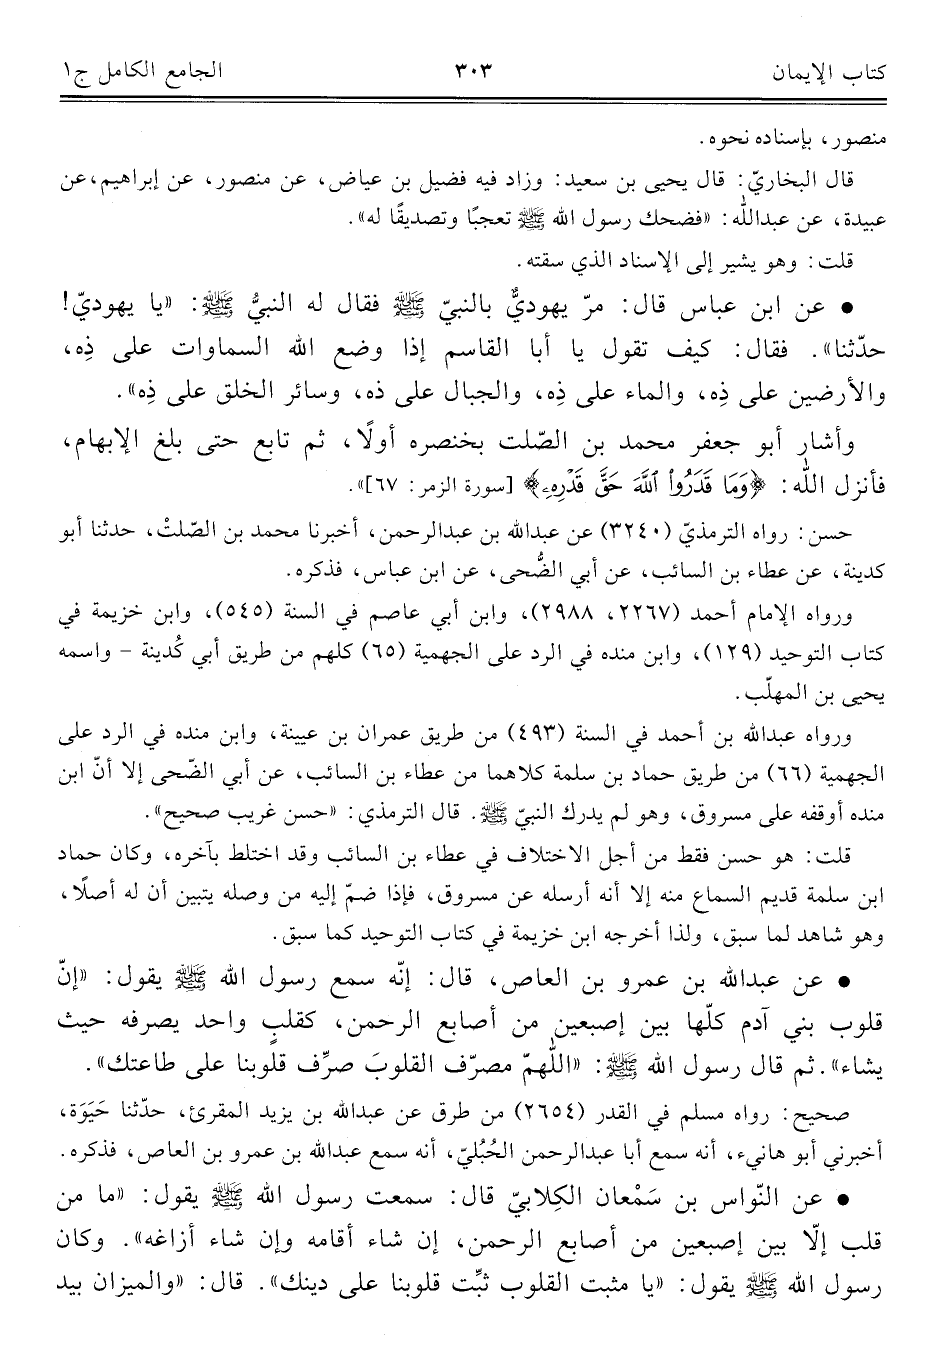 كتاب الإيمان ٣٠٣ الجامع الكامل ج١
منصور، بإسناده نحوه.
قال البخاريّ: قال يحيى بن سعيد: وزاد فيه فضيل بن عياض، عن منصور، عن إبراهيم،عن
عبيدة، عن عبدالله: «فضحك رسول الله ﷺ تعجبًا وتصديقًا له».
قلت: وهو يشير إلى الإسناد الذي سقته.
• عن ابن عباس قال: مرّ يهوديٌّ بالنبيّ ﷺ فقال له النبيُّ ﷺ: «يا يهوديّ!
حدّثنا». فقال: كيف تقول يا أبا القاسم إذا وضع الله السماوات على ذِه،
والأرضين على ذِه، والماء على ذِه، والجبال على ذه، وسائر الخلق على ذِه».
وأشار أبو جعفر محمد بن الصّلت بخنصره أولًا، ثم تابع حتى بلغ الإبهام،
فأنزل الله: ﴿وَمَا قَدَرُواْ ٱللَّهَ حَقَّ قَدۡرِهِۦ﴾ [سورة الزمر: ٦٧]».
حسن: رواه الترمذيّ (٣٢٤٠) عن عبدالله بن عبدالرحمن، أخبرنا محمد بن الصّلتْ، حدثنا أبو
كدينة، عن عطاء بن السائب، عن أبي الضُّحى، عن ابن عباس، فذكره.
ورواه الإمام أحمد (٢٢٦٧، ٢٩٨٨)، وابن أبي عاصم في السنة (٥٤٥)، وابن خزيمة في
كتاب التوحيد (١٢٩)، وابن منده في الرد على الجهمية (٦٥) كلهم من طريق أبي كُدينة - واسمه
يحيى بن المهلّب.
ورواه عبدالله بن أحمد في السنة (٤٩٣) من طريق عمران بن عيينة، وابن منده في الرد على
الجهمية (٦٦) من طريق حماد بن سلمة كلاهما من عطاء بن السائب، عن أبي الضّحى إلا أنّ ابن
منده أوقفه على مسروق، وهو لم يدرك النبيّ ﷺ. قال الترمذي: «حسن غريب صحيح».
قلت: هو حسن فقط من أجل الاختلاف في عطاء بن السائب وقد اختلط بآخره، وكان حماد
ابن سلمة قديم السماع منه إلا أنه أرسله عن مسروق، فإذا ضمّ إليه من وصله يتبين أن له أصلًا،
وهو شاهد لما سبق، ولذا أخرجه ابن خزيمة في كتاب التوحيد كما سبق.
• عن عبدالله بن عمرو بن العاص، قال: إنّه سمع رسول الله ﷺ يقول: «إنّ
قلوب بني آدم كلّها بين إصبعين من أصابع الرحمن، كقلبٍ واحد يصرفه حيث
يشاء».ثم قال رسول الله ﷺ: «اللهمّ مصرّف القلوبَ صرِّف قلوبنا على طاعتك».
صحيح: رواه مسلم في القدر (٢٦٥٤) من طرق عن عبدالله بن يزيد المقرئ، حدّثنا حَيَوَة،
أخبرني أبو هانيء، أنه سمع أبا عبدالرحمن الحُبُليّ، أنه سمع عبدالله بن عمرو بن العاص، فذكره.
• عن النّواس بن سَمْعان الكِلابيّ قال: سمعت رسول الله ﷺ يقول: «ما من
قلب إلّا بين إصبعين من أصابع الرحمن، إن شاء أقامه وإن شاء أزاغه». وكان
رسول الله ﷺ يقول: «يا مثبت القلوب ثبِّت قلوبنا على دينك». قال: «والميزان بيد